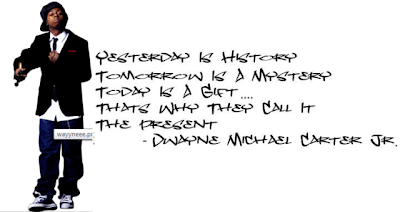 Yesterday Is History
Tomorrow Is A Mystery
Today Is A Gift ....
Thats Why They Call It
The Present
- Dwayne Michael Carter Jr.
wayyneee.pr